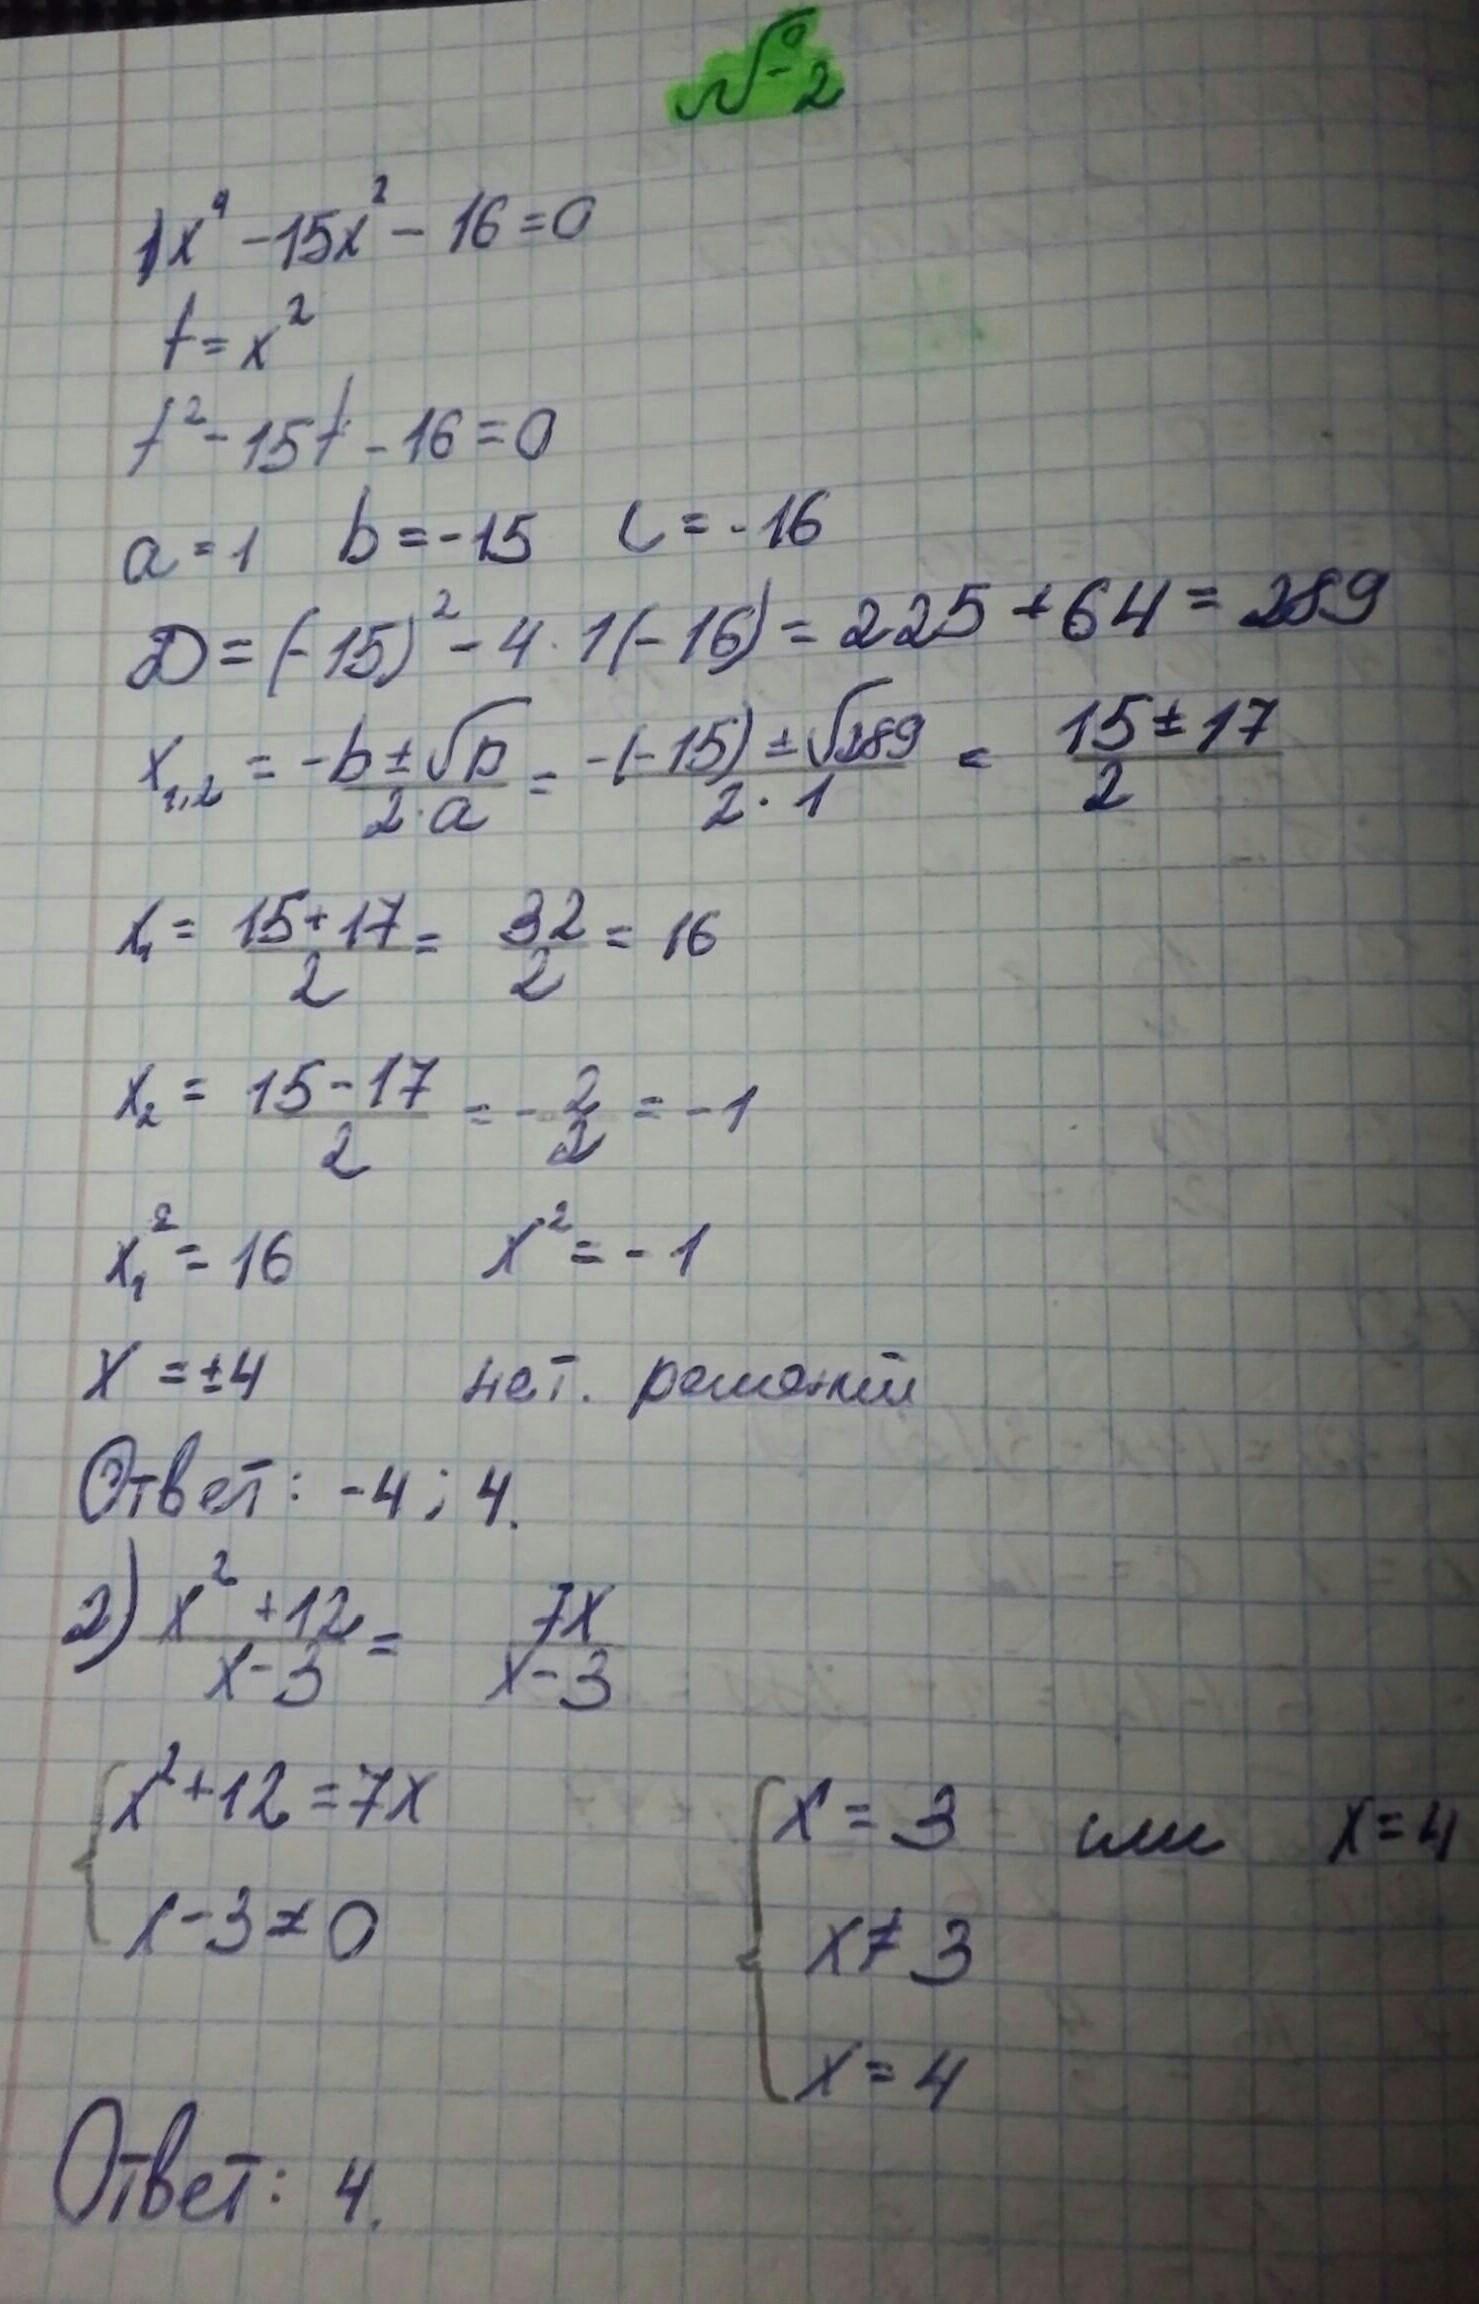 №2
1) x⁴ - 15x² - 16 = 0
t = x²
t² - 15t - 16 = 0
a = 1 b = -15 c = -16
D = (-15)² - 4 · 1(-16) = 225 + 64 = 289
x₁,₂ = -b ± √D / 2·a = -(-15) ± √289 / 2 · 1 = 15 ± 17 / 2
x₁ = 15 + 17 / 2 = 32 / 2 = 16
x₂ = 15 - 17 / 2 = - 2 / 2 = -1
x₁² = 16 x² = -1
x = ±4 нет. решений
Ответ: -4; 4.
2) x² + 12 / x - 3 = 7x / x - 3
{ x² + 12 = 7x { x = 3 или x = 4
x - 3 ≠ 0 x ≠ 3
x = 4
Ответ: 4.